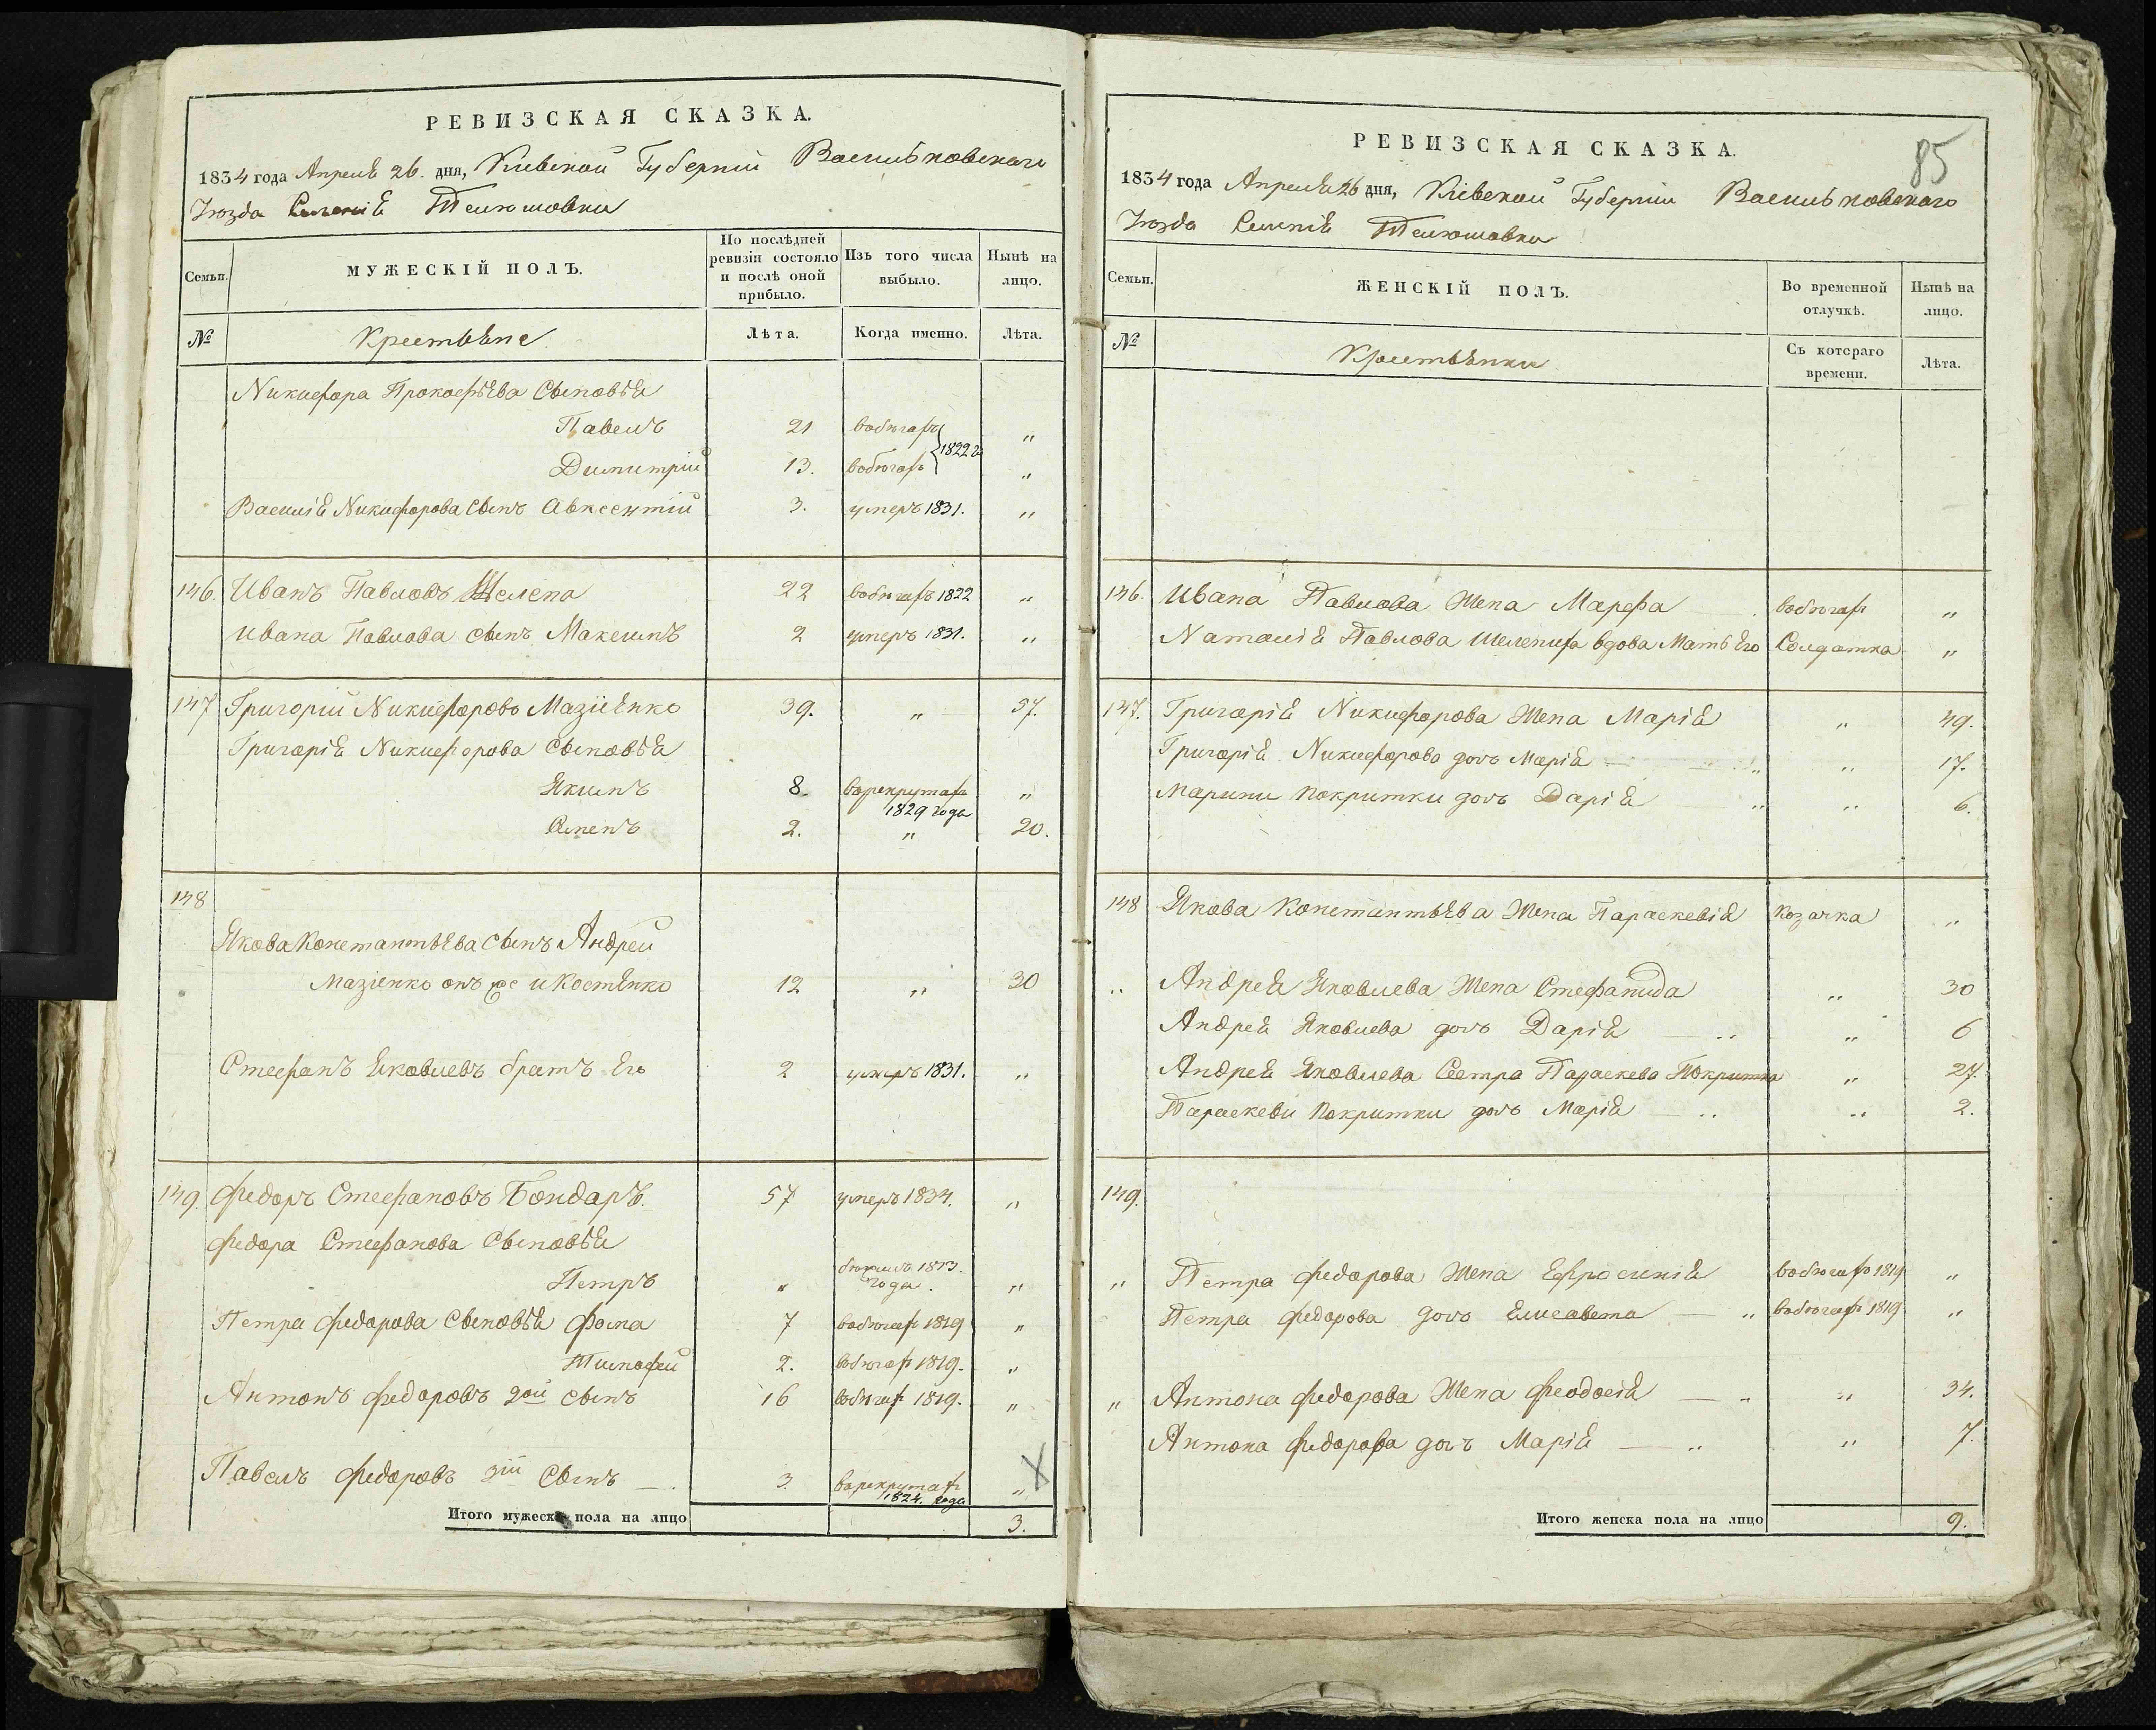 РЕВИЗСКАЯ СКАЗКА.
1834 года Апреля 26. дня, Киевской Губернии Васильковского
Уезда Селенія Телюшовки
Семьи.
МУЖЕСКІЙ ПОЛЪ.
По послѣдней ревизіи состояло и послѣ оной прибыло.
Изъ того числа выбыло.
Нынѣ на лицо.
№
Крестьяне
Лѣта.
Когда именно.
Лѣта.
Никифора Прокофьева Сыновья
Павелъ 21 вобѣгахъ 1822 г „
Димитрій 13. вобѣгахъ „
Василія Никифорова сынъ Авксентій 3. умеръ 1831. „
146. Иванъ Павловъ Шелепа 22 вобѣгахъ 1822 „
Ивана Павлова сынъ Максимъ 2 умеръ 1831. „
147 Григорій Никифоровъ Мазіенко 39. „ 57.
Григорія Никифорова Сыновья
Якимъ 8. ворекрутахъ 1829 года „
Семенъ 2. „ 20.
148
Якова Константьева сынъ Андрей
Мазіенко онъ же и Костенко 12 „ 30
Стефанъ Яковлевъ братъ Его 2 умеръ 1831. „
149. Федоръ Стефановъ Бондаръ. 57 умеръ 1834. „
Федора Стефанова Сыновья
Петръ „ 1813. года. „
Петра Федорова Сыновья Фома 7 вобѣгахъ 1819 „
Тимофей 2. вобѣгахъ 1819. „
Антонъ Федоровъ 2ой сынъ 16 вобѣгахъ 1819. „
Павелъ Федоровъ 3ій Сынъ 3. ворекрутахъ 1824. года „
Итого мужеска пола на лицо 3.
85
РЕВИЗСКАЯ СКАЗКА.
1834 года Апреля 26 дня, Кіевской Губерніи Васильковского
Уезда Селенія Телюшовки
Семьи.
ЖЕНСКІЙ ПОЛЪ.
Во временной отлучкѣ.
Нынѣ на лицо.
№
Крестьянки
Съ котораго времени.
Лѣта.
146. Ивана Павлова Жена Марфа вобѣгах „
Наталія Павлова Шелепиха вдова Мать Его Солдатка „
147. Григорія Никифорова Жена Марія „ 49.
Григорія Никифорова дочь Марія „ 17.
Марини покритки дочь Дарія „ 6.
148 Якова Константьева Жена Параскевія козачка „
„ Андрея Яковлева Жена Стефанида „ 30
Андрея Яковлева дочь Дарія „ 6
Андрея Яковлева Сестра Параскева Покритка „ 27.
Параскеви покритки дочь Марія „ 2.
149.
„ Петра Федорова Жена Ефросинія вобѣгахъ 1819 „
Петра Федорова дочь Елисавета „ вобѣгахъ 1819 „
„ Антона Федорова Жена Феодосія „ 34.
Антона Федорова дочь Марія „ 7.
Итого женска пола на лицо 9.